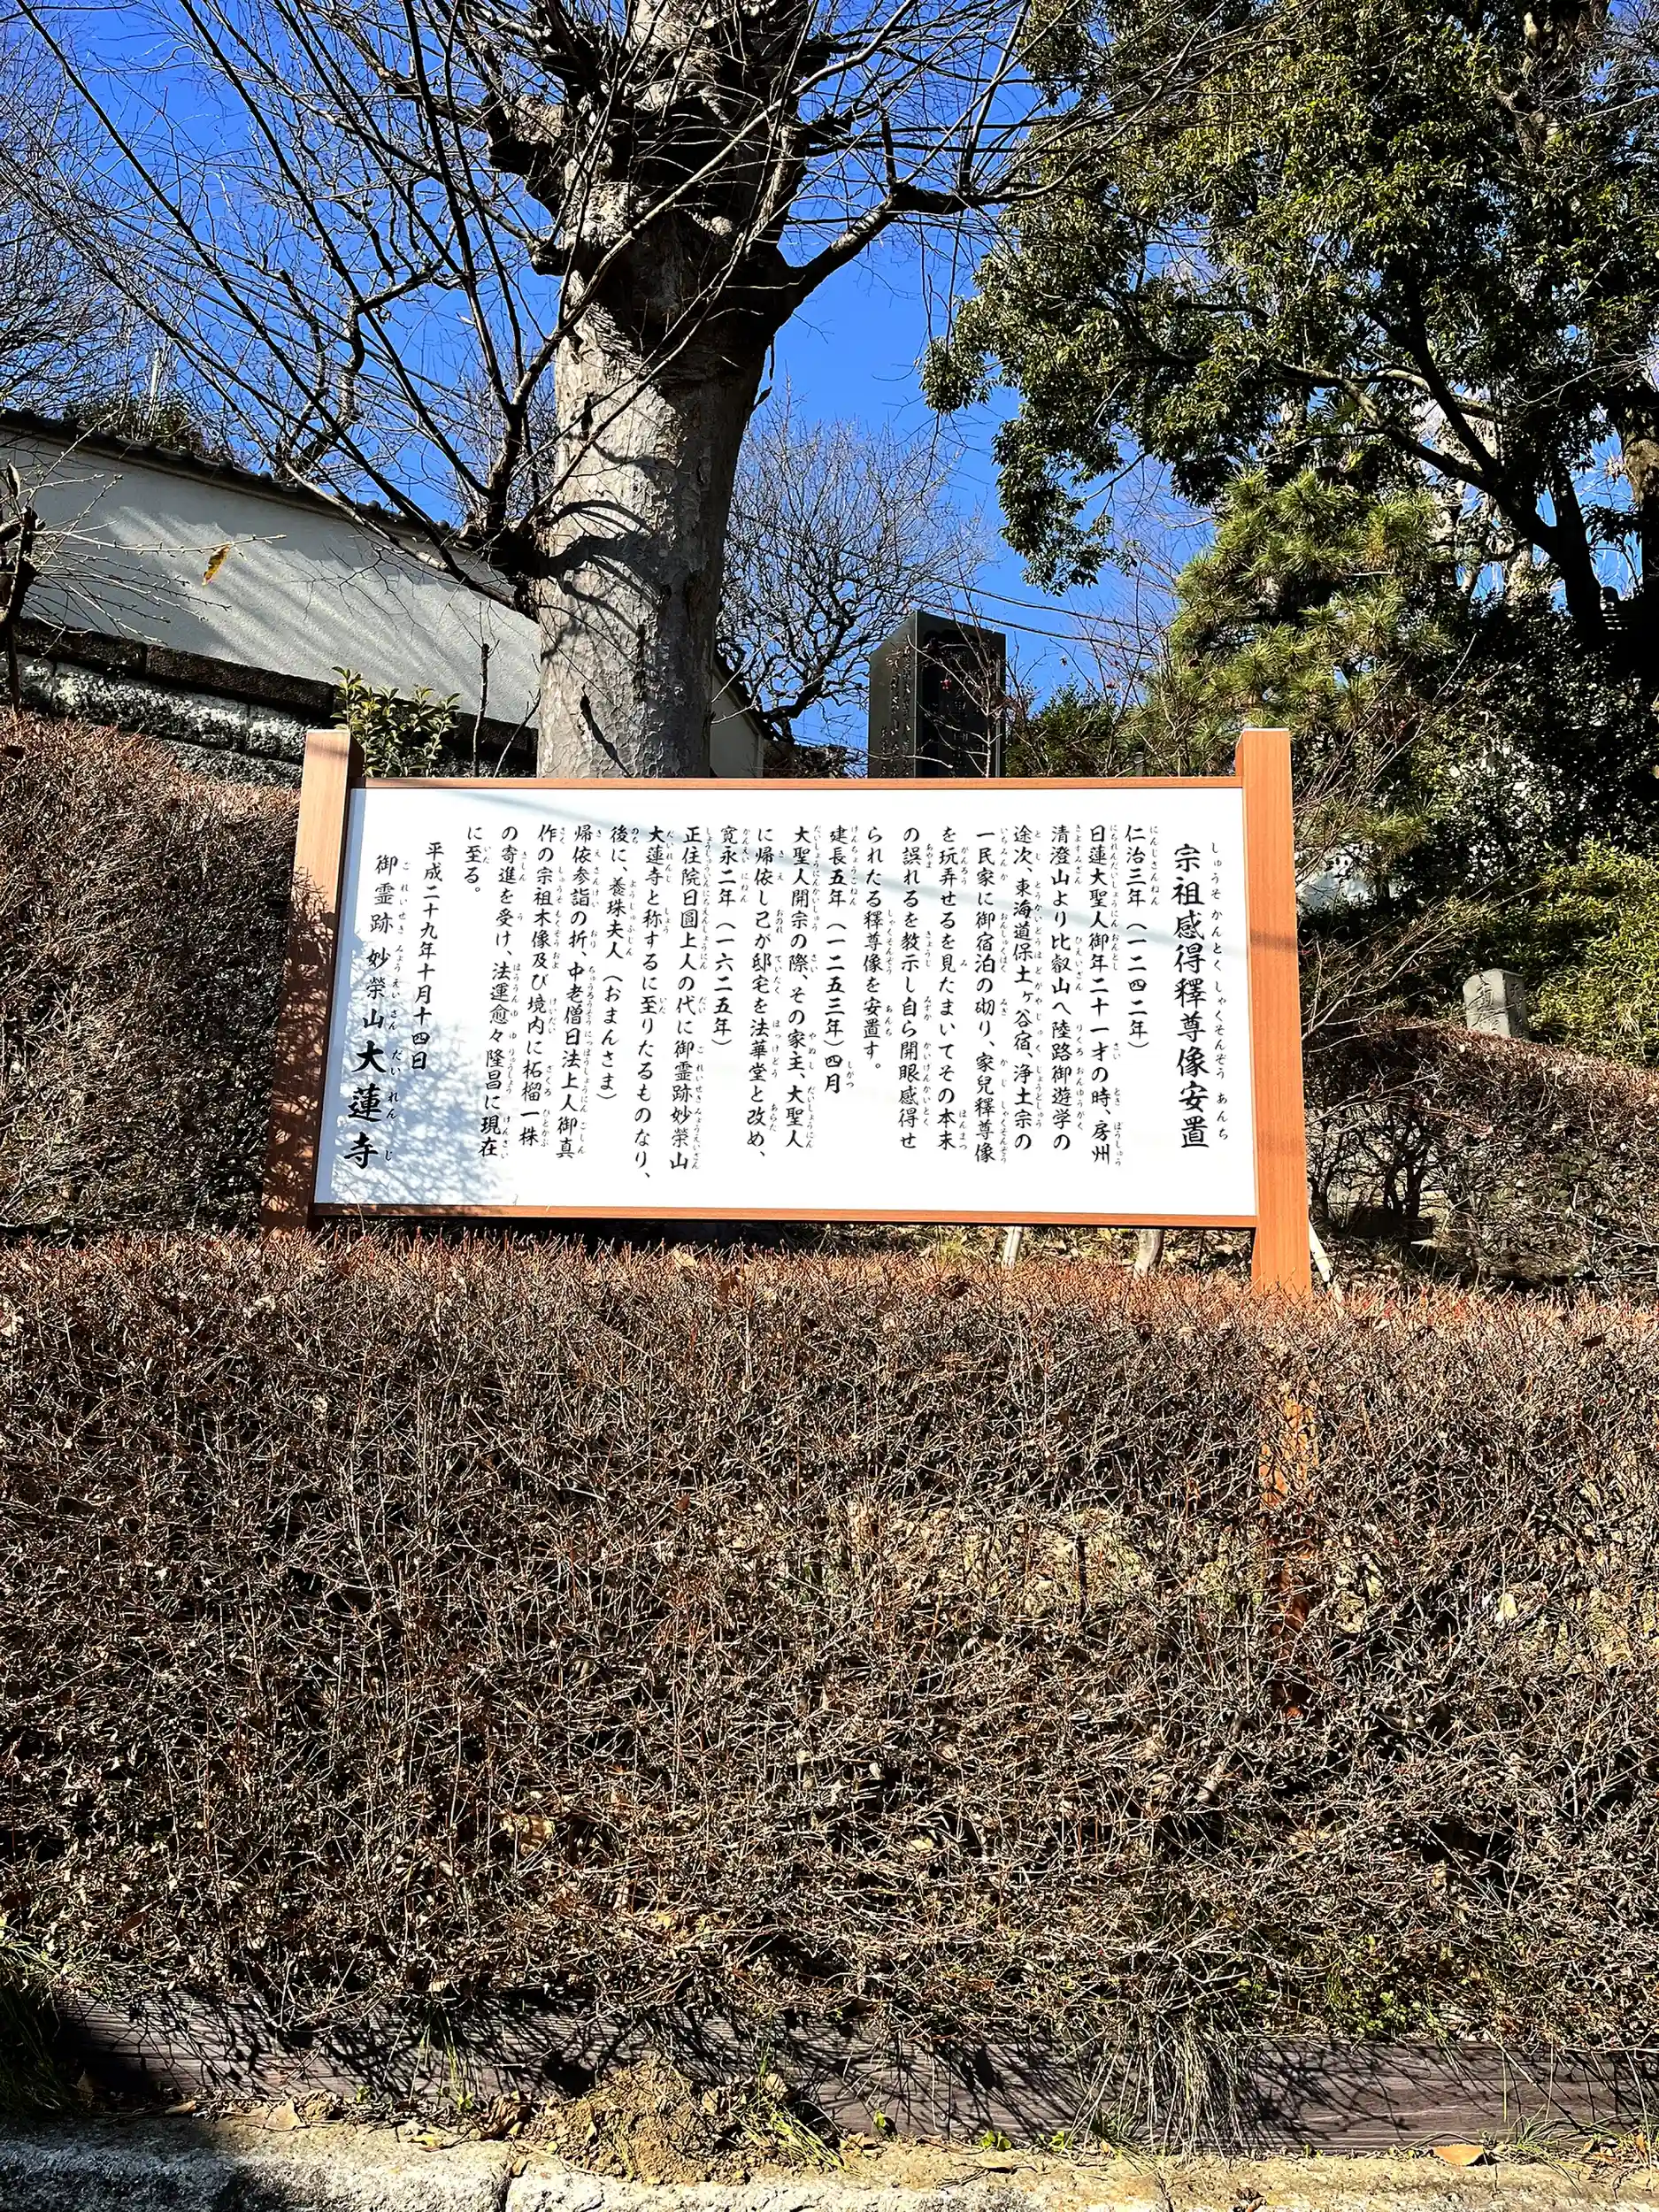 宗祖感得釋尊像安置
仁治三年（一二四二年）
日蓮大聖人御年二十一才の時、房州
清澄山より比叡山へ陸路御遊学の
途次、東海道保土ヶ谷宿、浄土宗の
一民家に御宿泊の砌り、家兒釋尊像
を玩弄せるを見たまいてその本末
の誤れるを教示し自ら開眼感得せ
られたる釋尊像を安置す。
建長五年（一二五三年）四月
大聖人開宗の際、その家主、大聖人
に帰依し己が邸宅を法華堂と改め、
寛永二年（一六二五年）
正住院日圓上人の代に御霊跡妙榮山
大蓮寺と称するに至りたるものなり、
後に、養珠夫人（おまんさま）
帰依参詣の折、中老僧日法上人御真
作の宗祖木像及び境内に柘榴一株
の寄進を受け、法運愈々隆昌に現在
に至る。
平成二十九年十月十四日
御霊跡 妙榮山大蓮寺